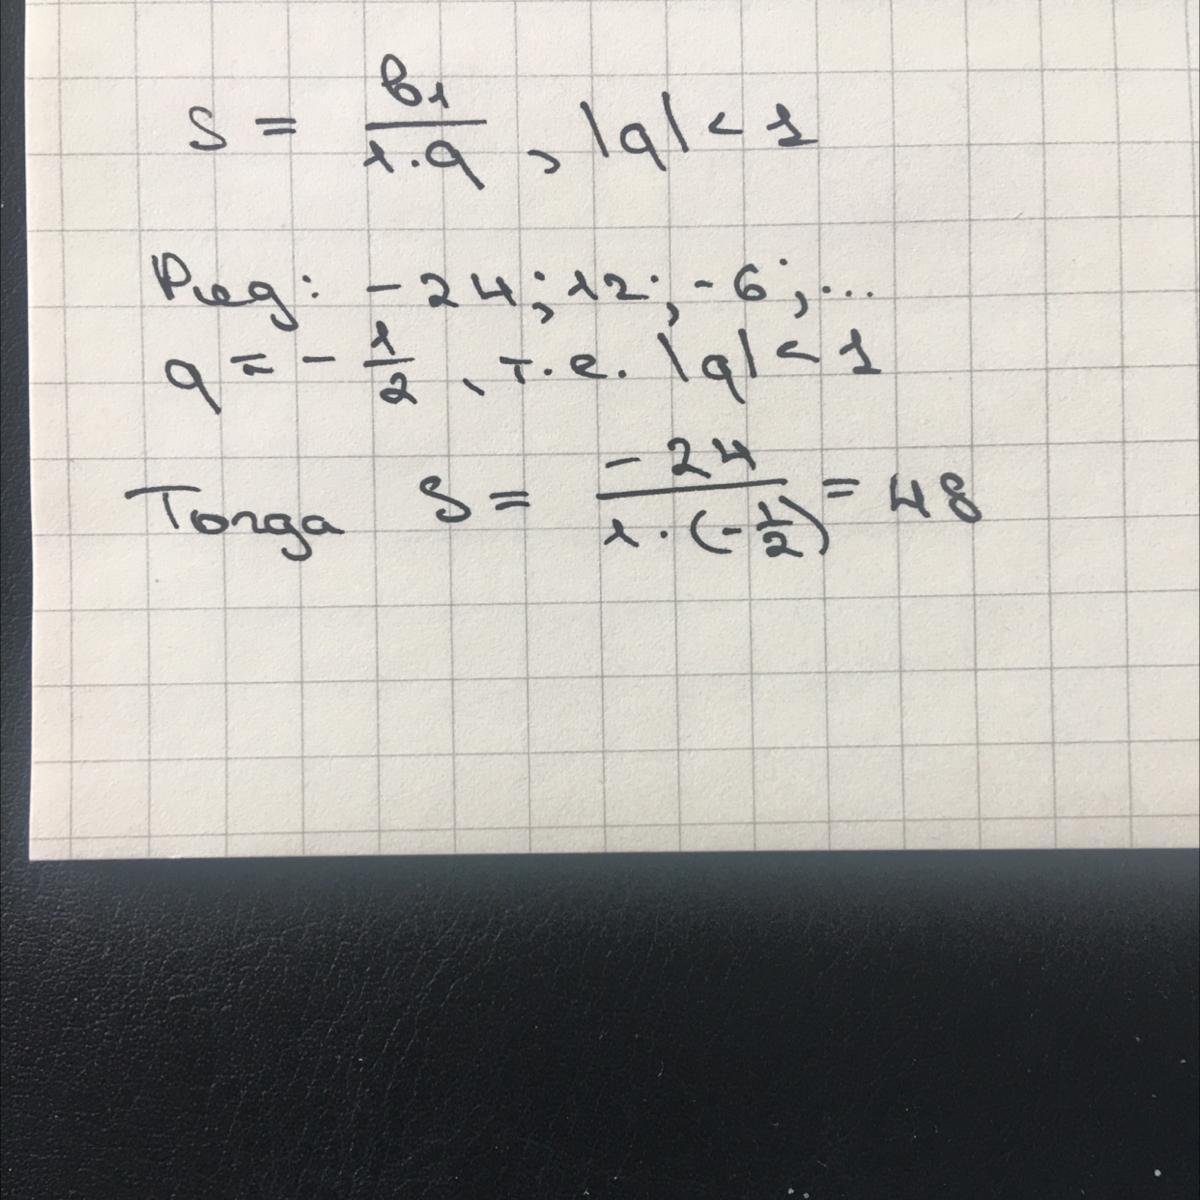 S = b₁/(1·q), |q| < 1
Ряд: -24; 12; -6; ...
q = -1/2, т.е. |q| < 1
Тогда S = -24/(1·(-1/2)) = 48